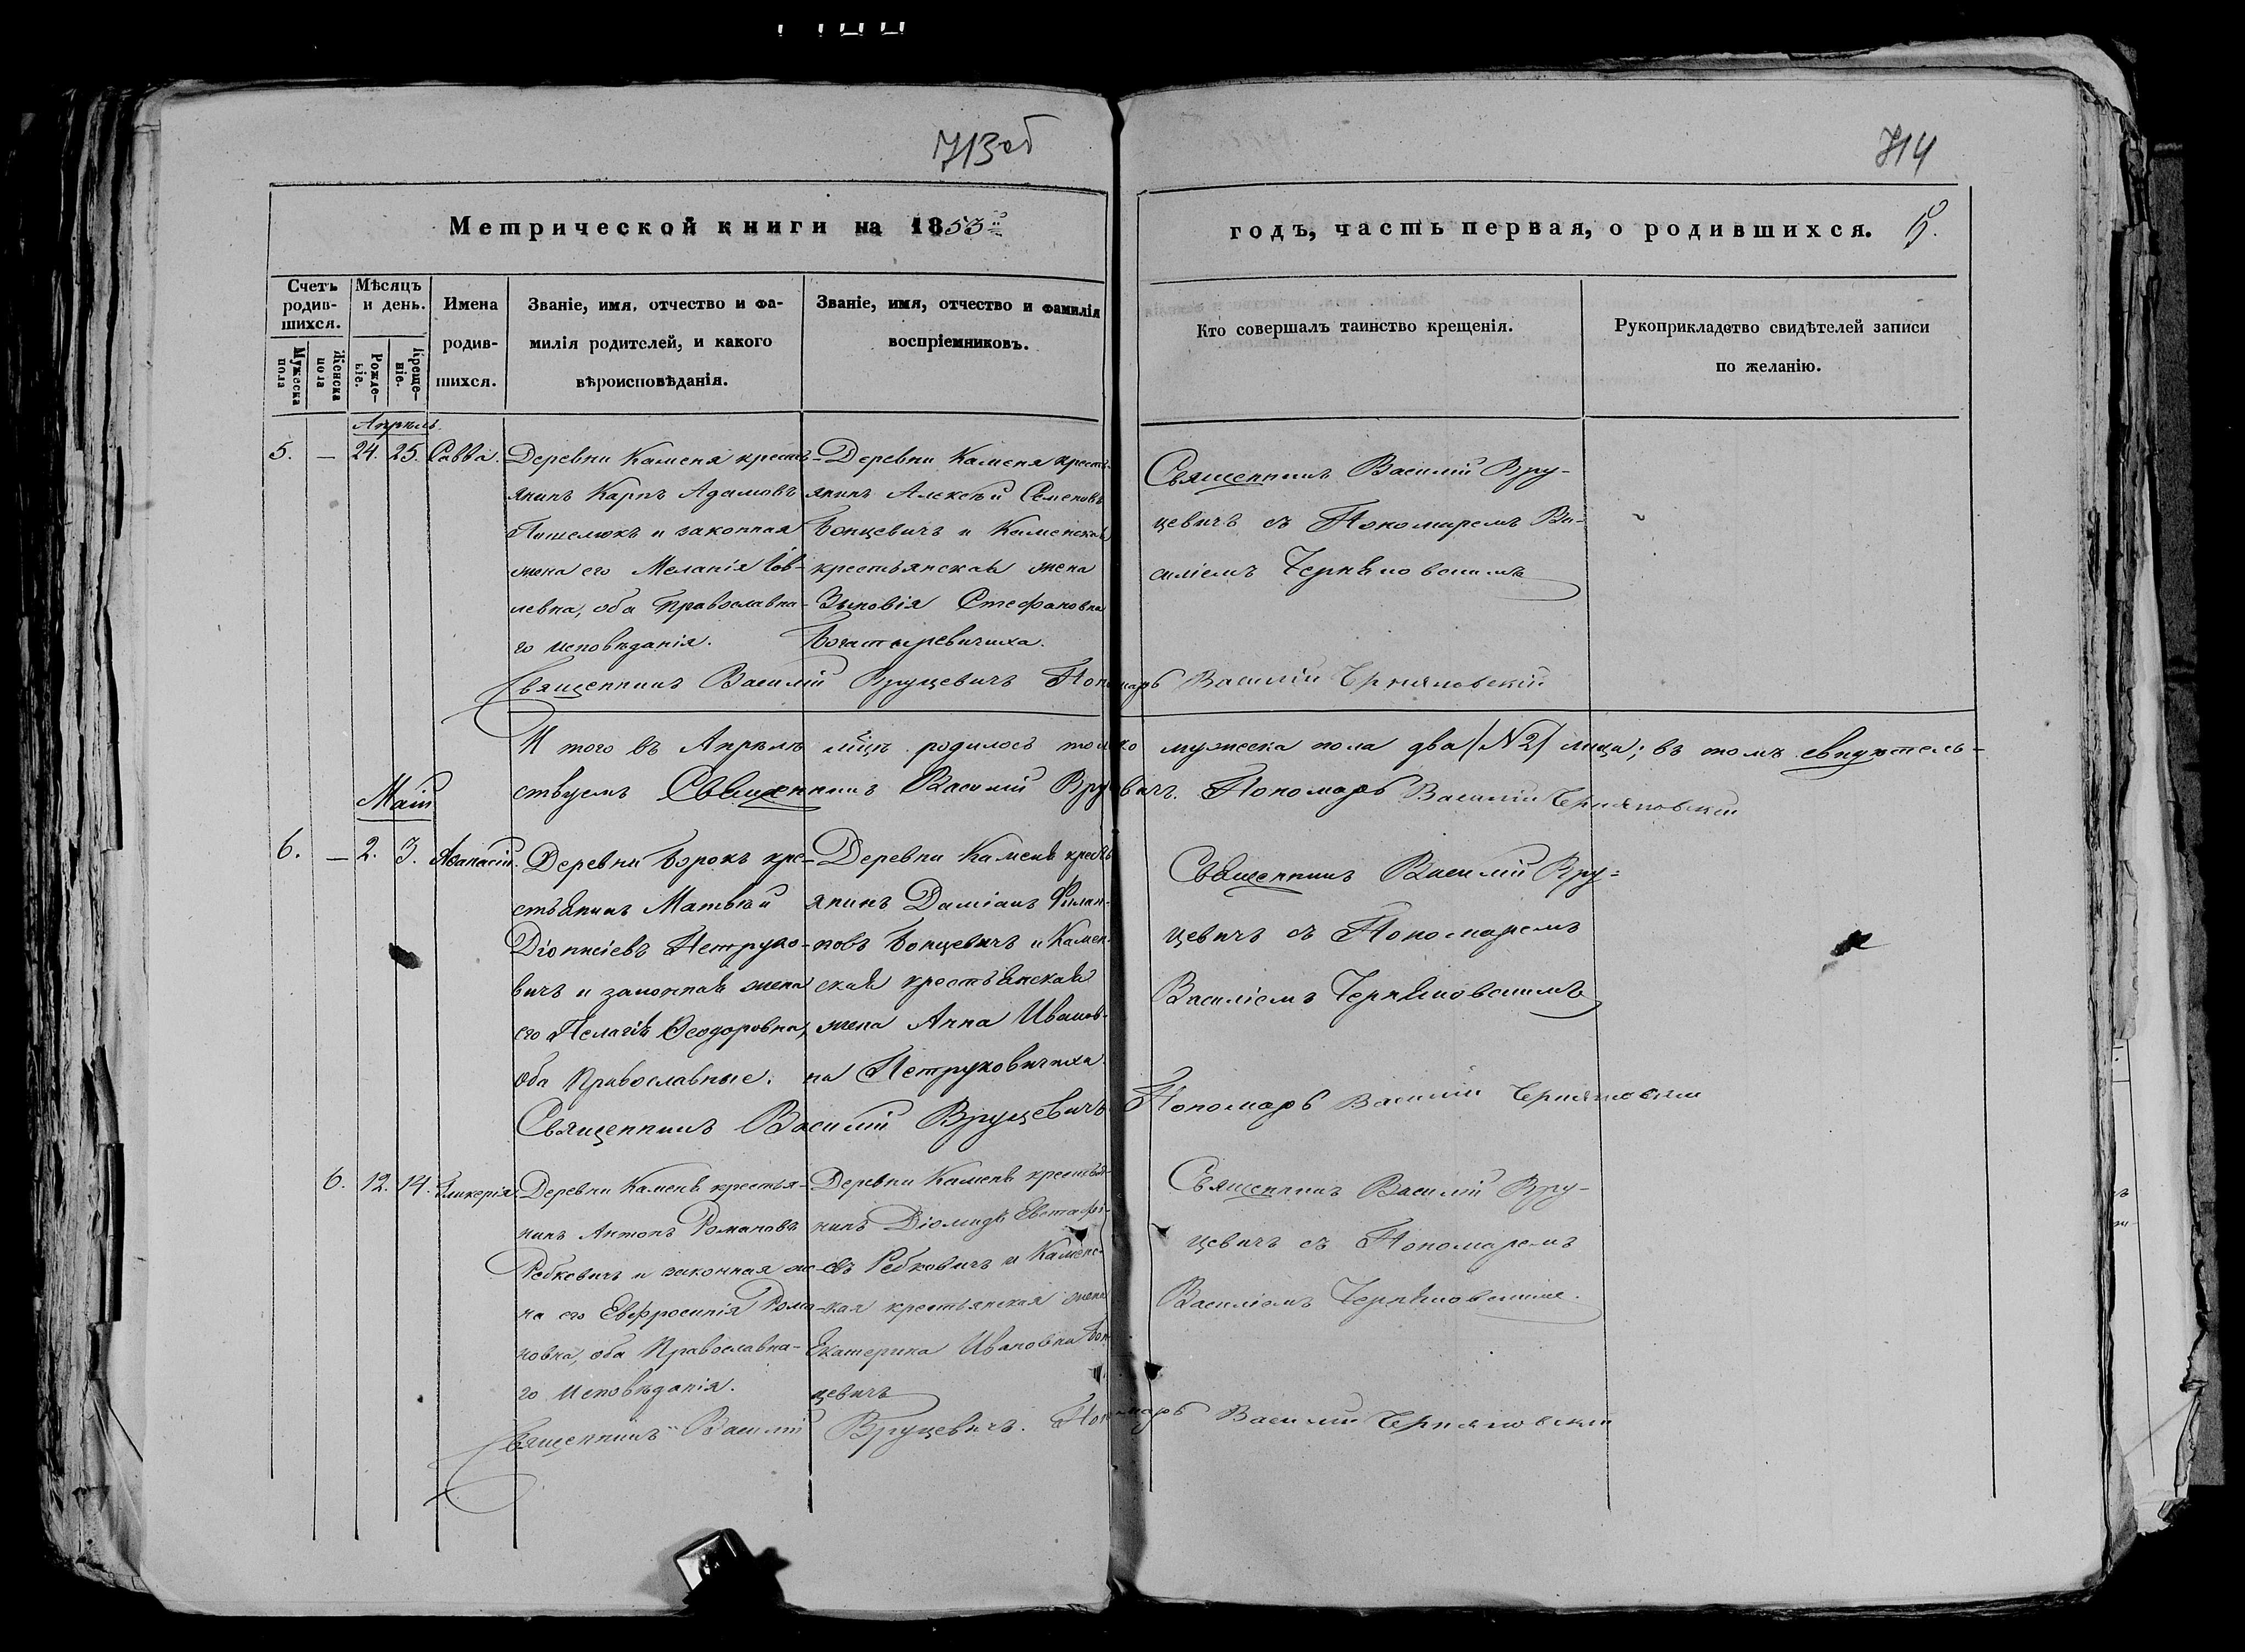 713об
714
Метрической книги на 1853й
годъ, часть первая, о родившихся. 5.
Счетъ родив-шихся.
Мѣсяцъ и день.
Имена родив-шихся.
Званіе, имя, отчество и фа-милія родителей, и какого вѣроисповѣданія.
Званіе, имя, отчество и фамилія воспріемниковъ.
Кто совершалъ таинство крещенія.
Рукоприкладство свидѣтелей записи по желанію.
Мужеска пола
Женска пола
Рожде-ніе.
Креще-ніе.
Апрель.
5. — 24. 25. Савва.
Деревни Каменя кресть-
янинъ Карпъ Адамовъ
и законная
жена его Меланія Іов-
левна, оба Православна-
го исповѣданія.
Деревни Каменя кресть-
янинъ Алексѣй Семеновъ
Бонцевичъ и Каменская
крестьянская жена
Зиновія Стефановна
Богатыревичиха.
Священникъ Василій Вру-
цевичъ съ Пономаремъ Ва-
силіемъ Черняковскимъ
Священникъ Василій Вруцевичъ Пономарь Василій Черняковскій
И того въ Апрѣлѣ м-цѣ родилось только мужеска пола два /№2/ лица; въ томъ свидѣтель-
ствуемъ Священникъ Василій Вруцевичъ. Пономарь Василій Черняковскій
Маій
6. — 2. 3. Аѳанасій.
Деревни Борокъ кре-
стьянинъ Матвѣй
Діонисіевъ Петруко-
вичъ и законная жена
его Пелагія Ѳеодоровна,
оба Православные.
Деревни Каменя кресть-
янинъ Даміанъ Филип-
повъ Бонцевичъ и Камен-
ская крестьянская
жена Анна Иванов-
на Петруковичиха.
Священникъ Василій Вру-
цевичъ съ Пономаремъ
Василіемъ Черняковскимъ
Священникъ Василій Вруцевичъ Пономарь Василій Черняковскій
6. 12. 14. Гликерія.
Деревни Каменя крестья-
нинъ Антонъ Романовъ
Ребковичъ и законная же-
на его Евфросинія Рома-
новна, оба Православна-
го Исповѣданія.
Деревни Каменя крестья-
нинъ Діомидъ Евстафі-
евъ Ребковичъ и Каменс-
кая крестьянская жена
Екатерина Ивановна Бон-
цевичъ
Священникъ Василій Вру-
цевичъ съ Пономаремъ
Василіемъ Черняковскимъ.
Священникъ Василій Вруцевичъ. Пономарь Василій Черняковскій